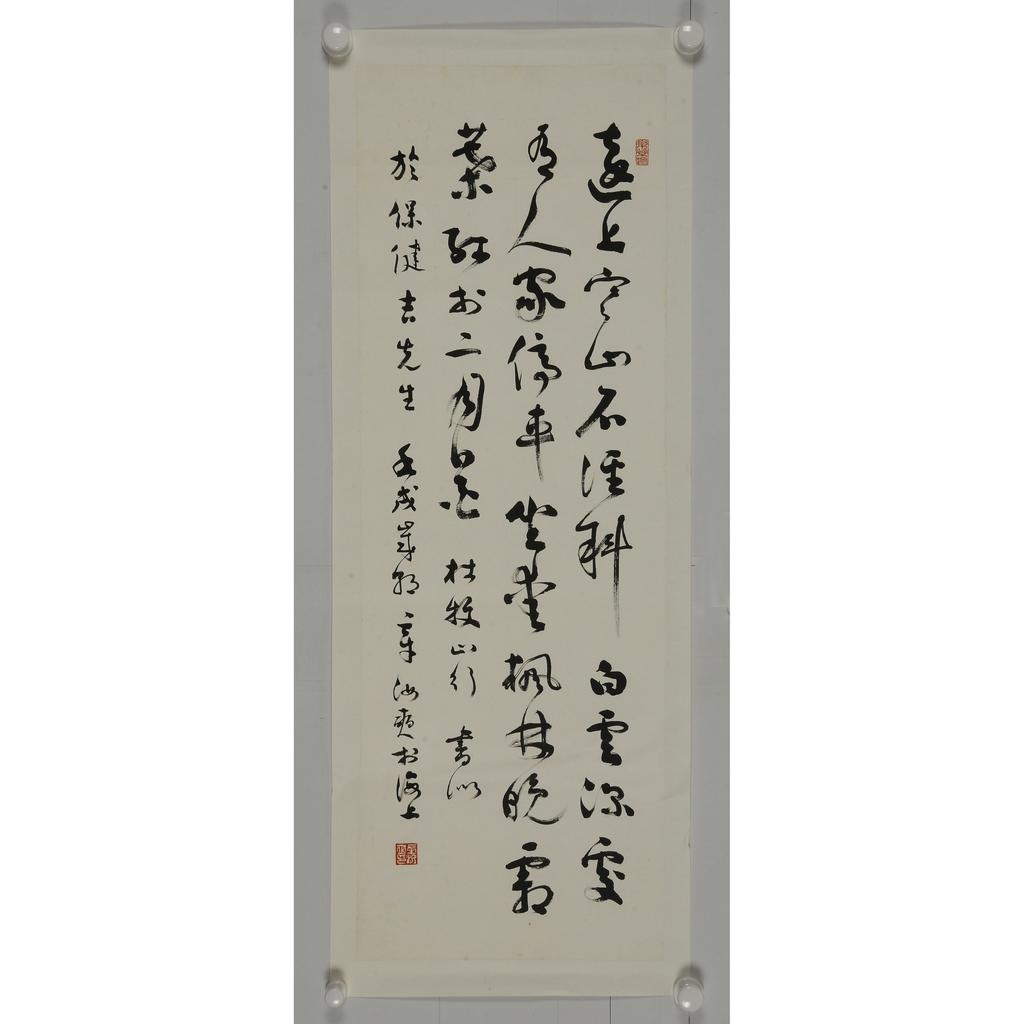 遠上寒山石徑斜 白雲深處
有人家停車坐愛楓林晚霜
葉紅於二月花 杜牧山行 書似
於保健吉先生 壬戌歲 章汝奭於海上